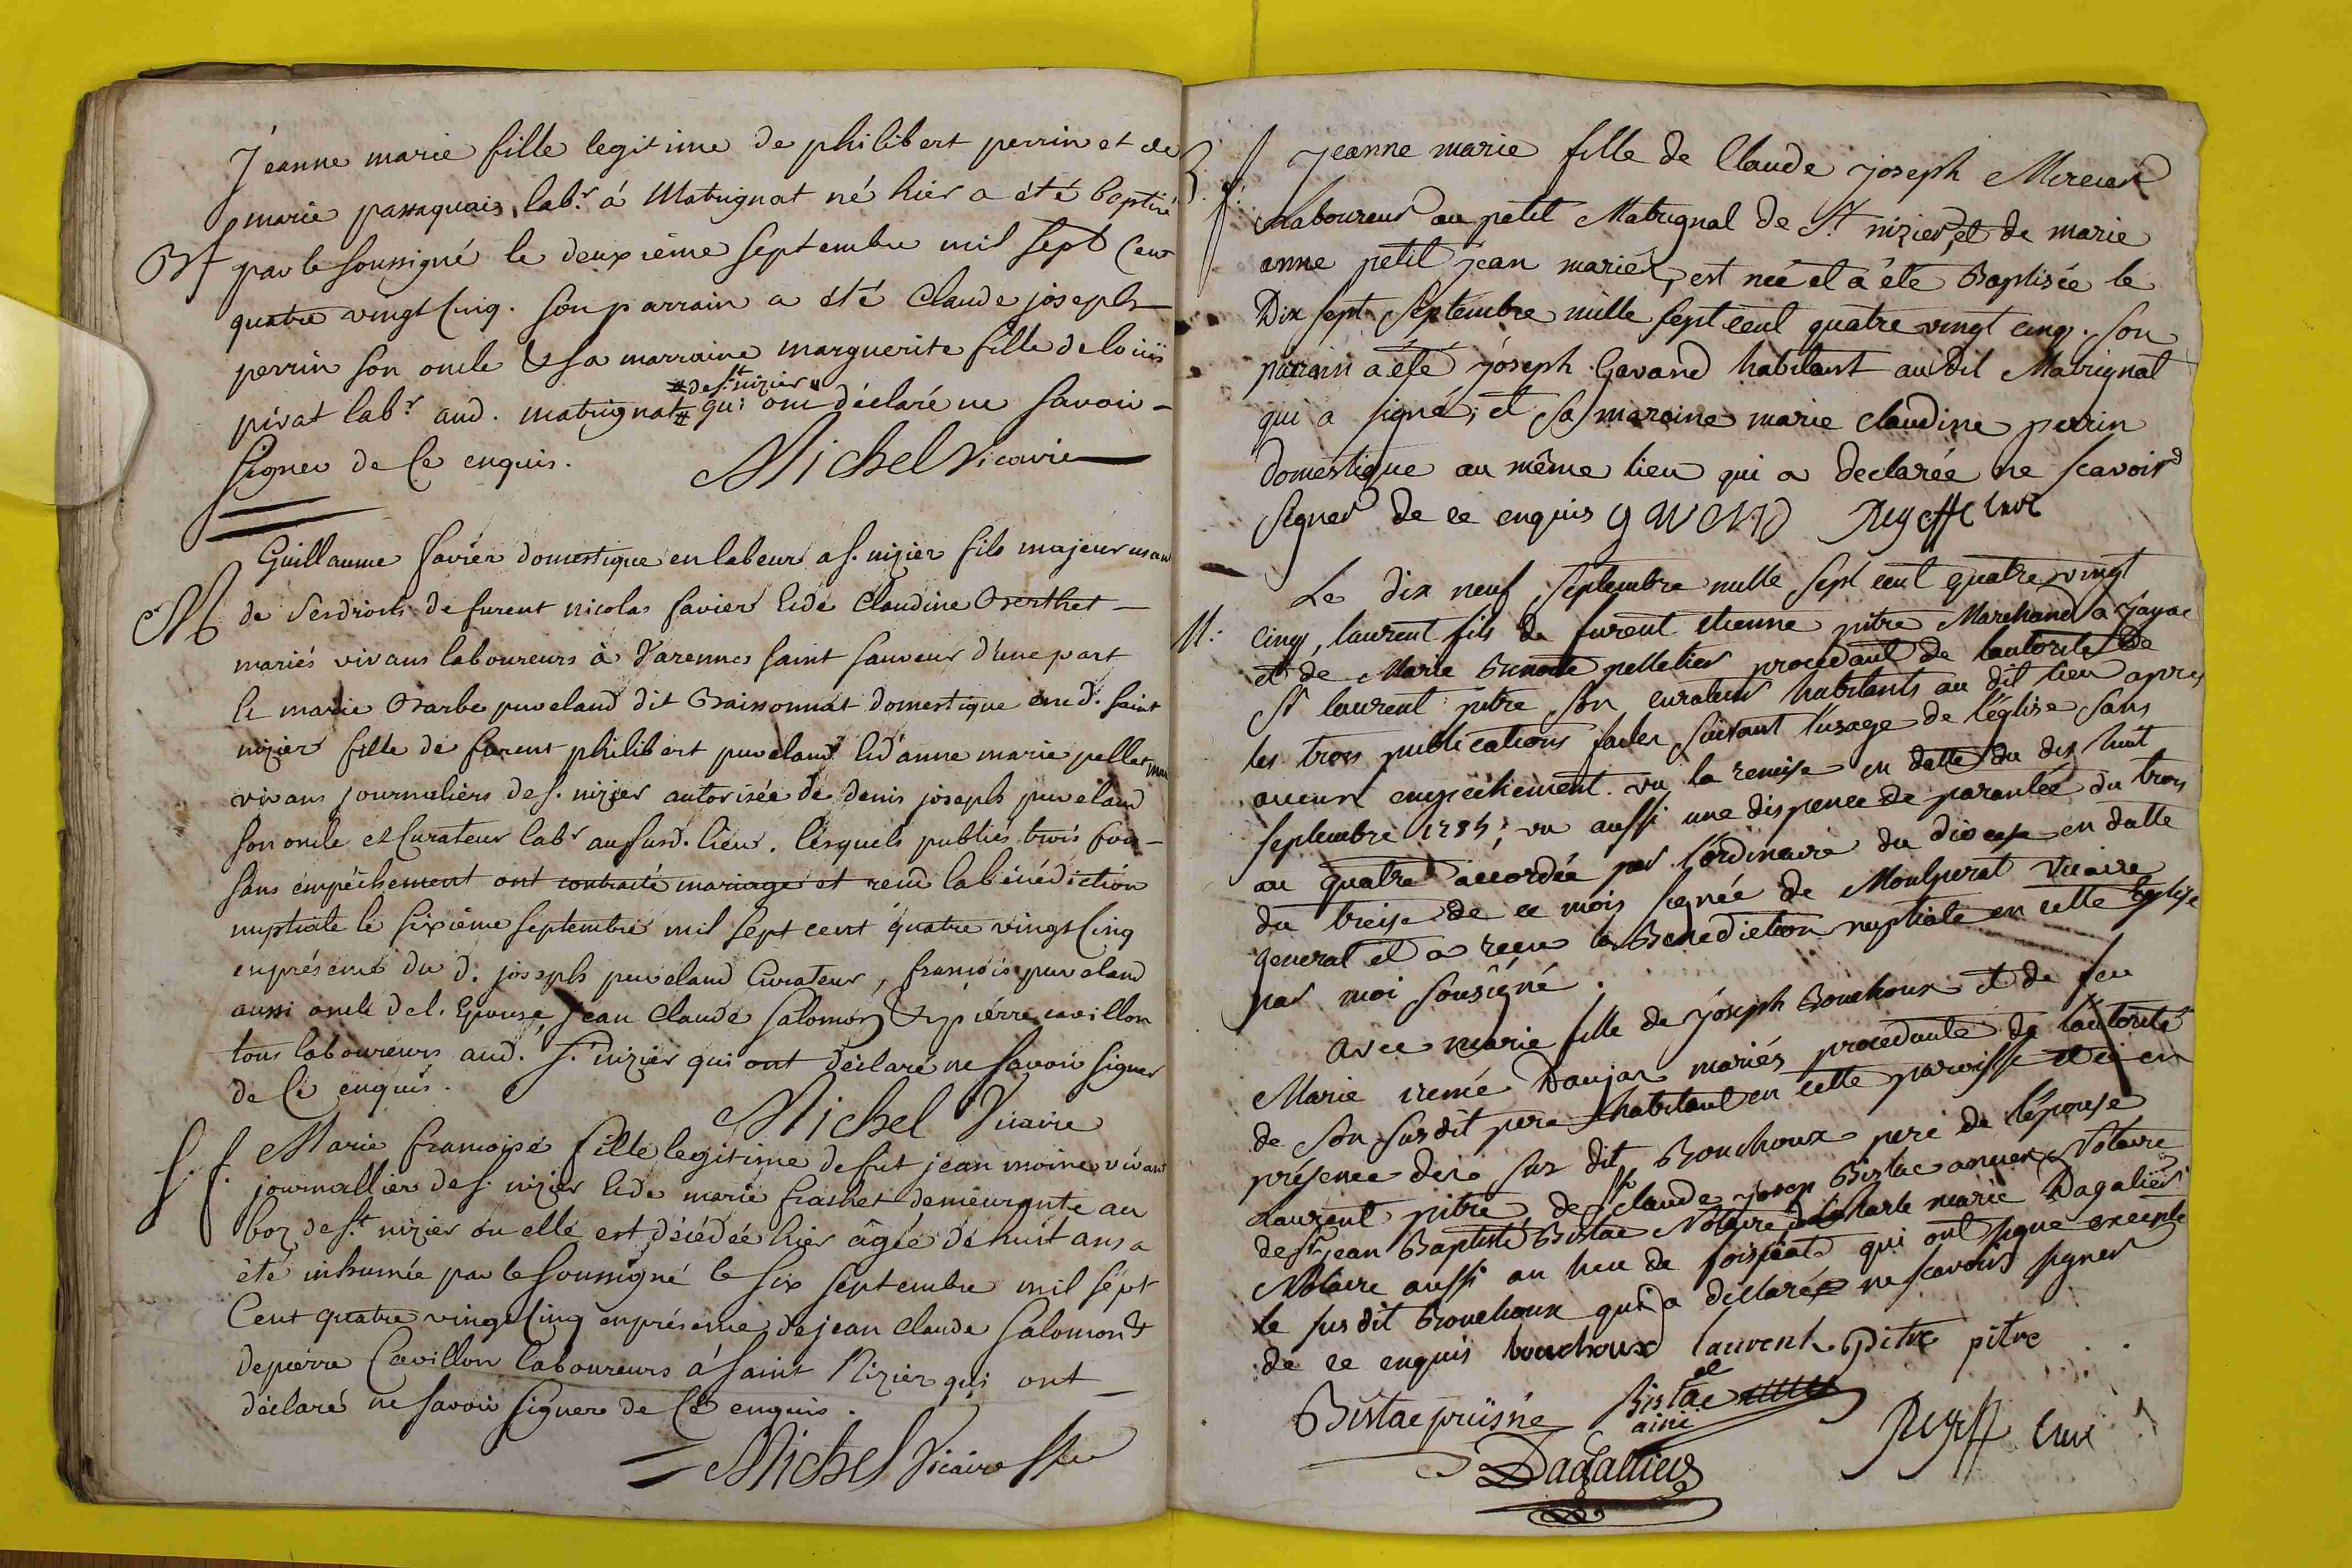 Jeanne marie fille legitime de philibert perrin et de
marie passaquais lab.r á Matrignat né hier a été baptisé
Bf par le soussigné le deuxième septembre mil sept cent
quatre vingt cinq. son parrain a été Claude joseph
perrin son oncle & sa marraine marguerite fille de loüis
# de s.t nizier
pirat lab.r aud. matrignat # qui ont déclaré ne savoir
signer de ce enquis. Michel Vicaire
Guillaume savier domestique en labeur a s. nizier fils majeur usant
M de ses droits de furent nicolas savier & de Claudine Berthet
mariés vivans laboureurs à Varennes saint sauveur d'une part
& marie Barbe puveland dit Baissonnat domestique aud. saint
nizier fille de furent philibert puveland & d'anne marie pellet
vivans journaliers de s. nizier autorisée de denis joseph puveland
son oncle et Curateur lab.r au susd. lieu. lesquels publiés trois fois
sans empêchement ont contracté mariage et reçu la bénédiction
nuptiale le sixième septembre mil sept cent quatre vingt cinq
en présence du d. joseph puveland Curateur, françois puveland
aussi oncle de l. Epouse, jean Claude salomon & pierre cavillon
tous laboureurs aud. s.t nizier qui ont déclaré ne savoir signer
de ce enquis. Michel Vicaire
S. f. Marie françoise fille legitime de fut jean moine vivant
journallier de s. nizier & de marie frachet demeurante au
boz de s.t nizier ou elle est décédée hier âgée de huit ans a
été inhumée par le soussigné le six septembre mil sept
Cent quatre vingt cinq en présence de jean claude salomon &
de pierre Cavillon laboureurs á saint Nizier qui ont
déclaré ne savoir signer de ce enquis.
Michel Vicaire
B. f. Jeanne marie fille de Claude joseph Mercier
Laboureur au petit Matrignat de S.t nizier, et de marie
anne petit jean mariés, est née et a été Baptisée le
Dix sept septembre mille sept cent quatre vingt cinq. son
parrain a été joseph Gavand habitant audit Matrignat
qui a signé, et sa maraine marie claudine perrin
domestique au même lieu qui a declarée ne scavoir
signer de ce enquis
Le dix neuf septembre mille sept cent quatre vingt
M: cinq, laurent fils de furent etienne pitre Marchand a Jayac
et de Marie Benoite pelletier procedant de lautorité de
S.r laurent pitre son curateur habitants au dit lieu apres
les trois publications faites suivant l'usage de l'église sans
aucun empechement. vu la remise en datte du dix huit
septembre 1785; vu aussi une dispence de parantée du trois
au quatre accordée par l'ordinaire du diocese en datte
du treise de ce mois signée de Monperat vicaire
general et a reçu la Benediction nuptiale en cette Eglise
par moi sousigné.
avec marie fille de joseph Bouchoux et de feu
Marie iremé Daujar mariés procedante de lautorité
de son susdit pere habitant en cette paroisse et ci en
présence de sus dit Bouchoux pere de l'épouse
Laurent pitre de S.r claude josep Bistac ancien Notaire
de S.r jean Baptiste Bistac Notaire de charle marie Dagalier
Notaire aussi au lieu de foissiat qui ont signé excepté
le sus dit Bouchoux qui a déclaré ne scavoir signer
de ce enquis bouchoux laurent pitre pitre
Bistac puisné Bistac
ainé
Dagallier